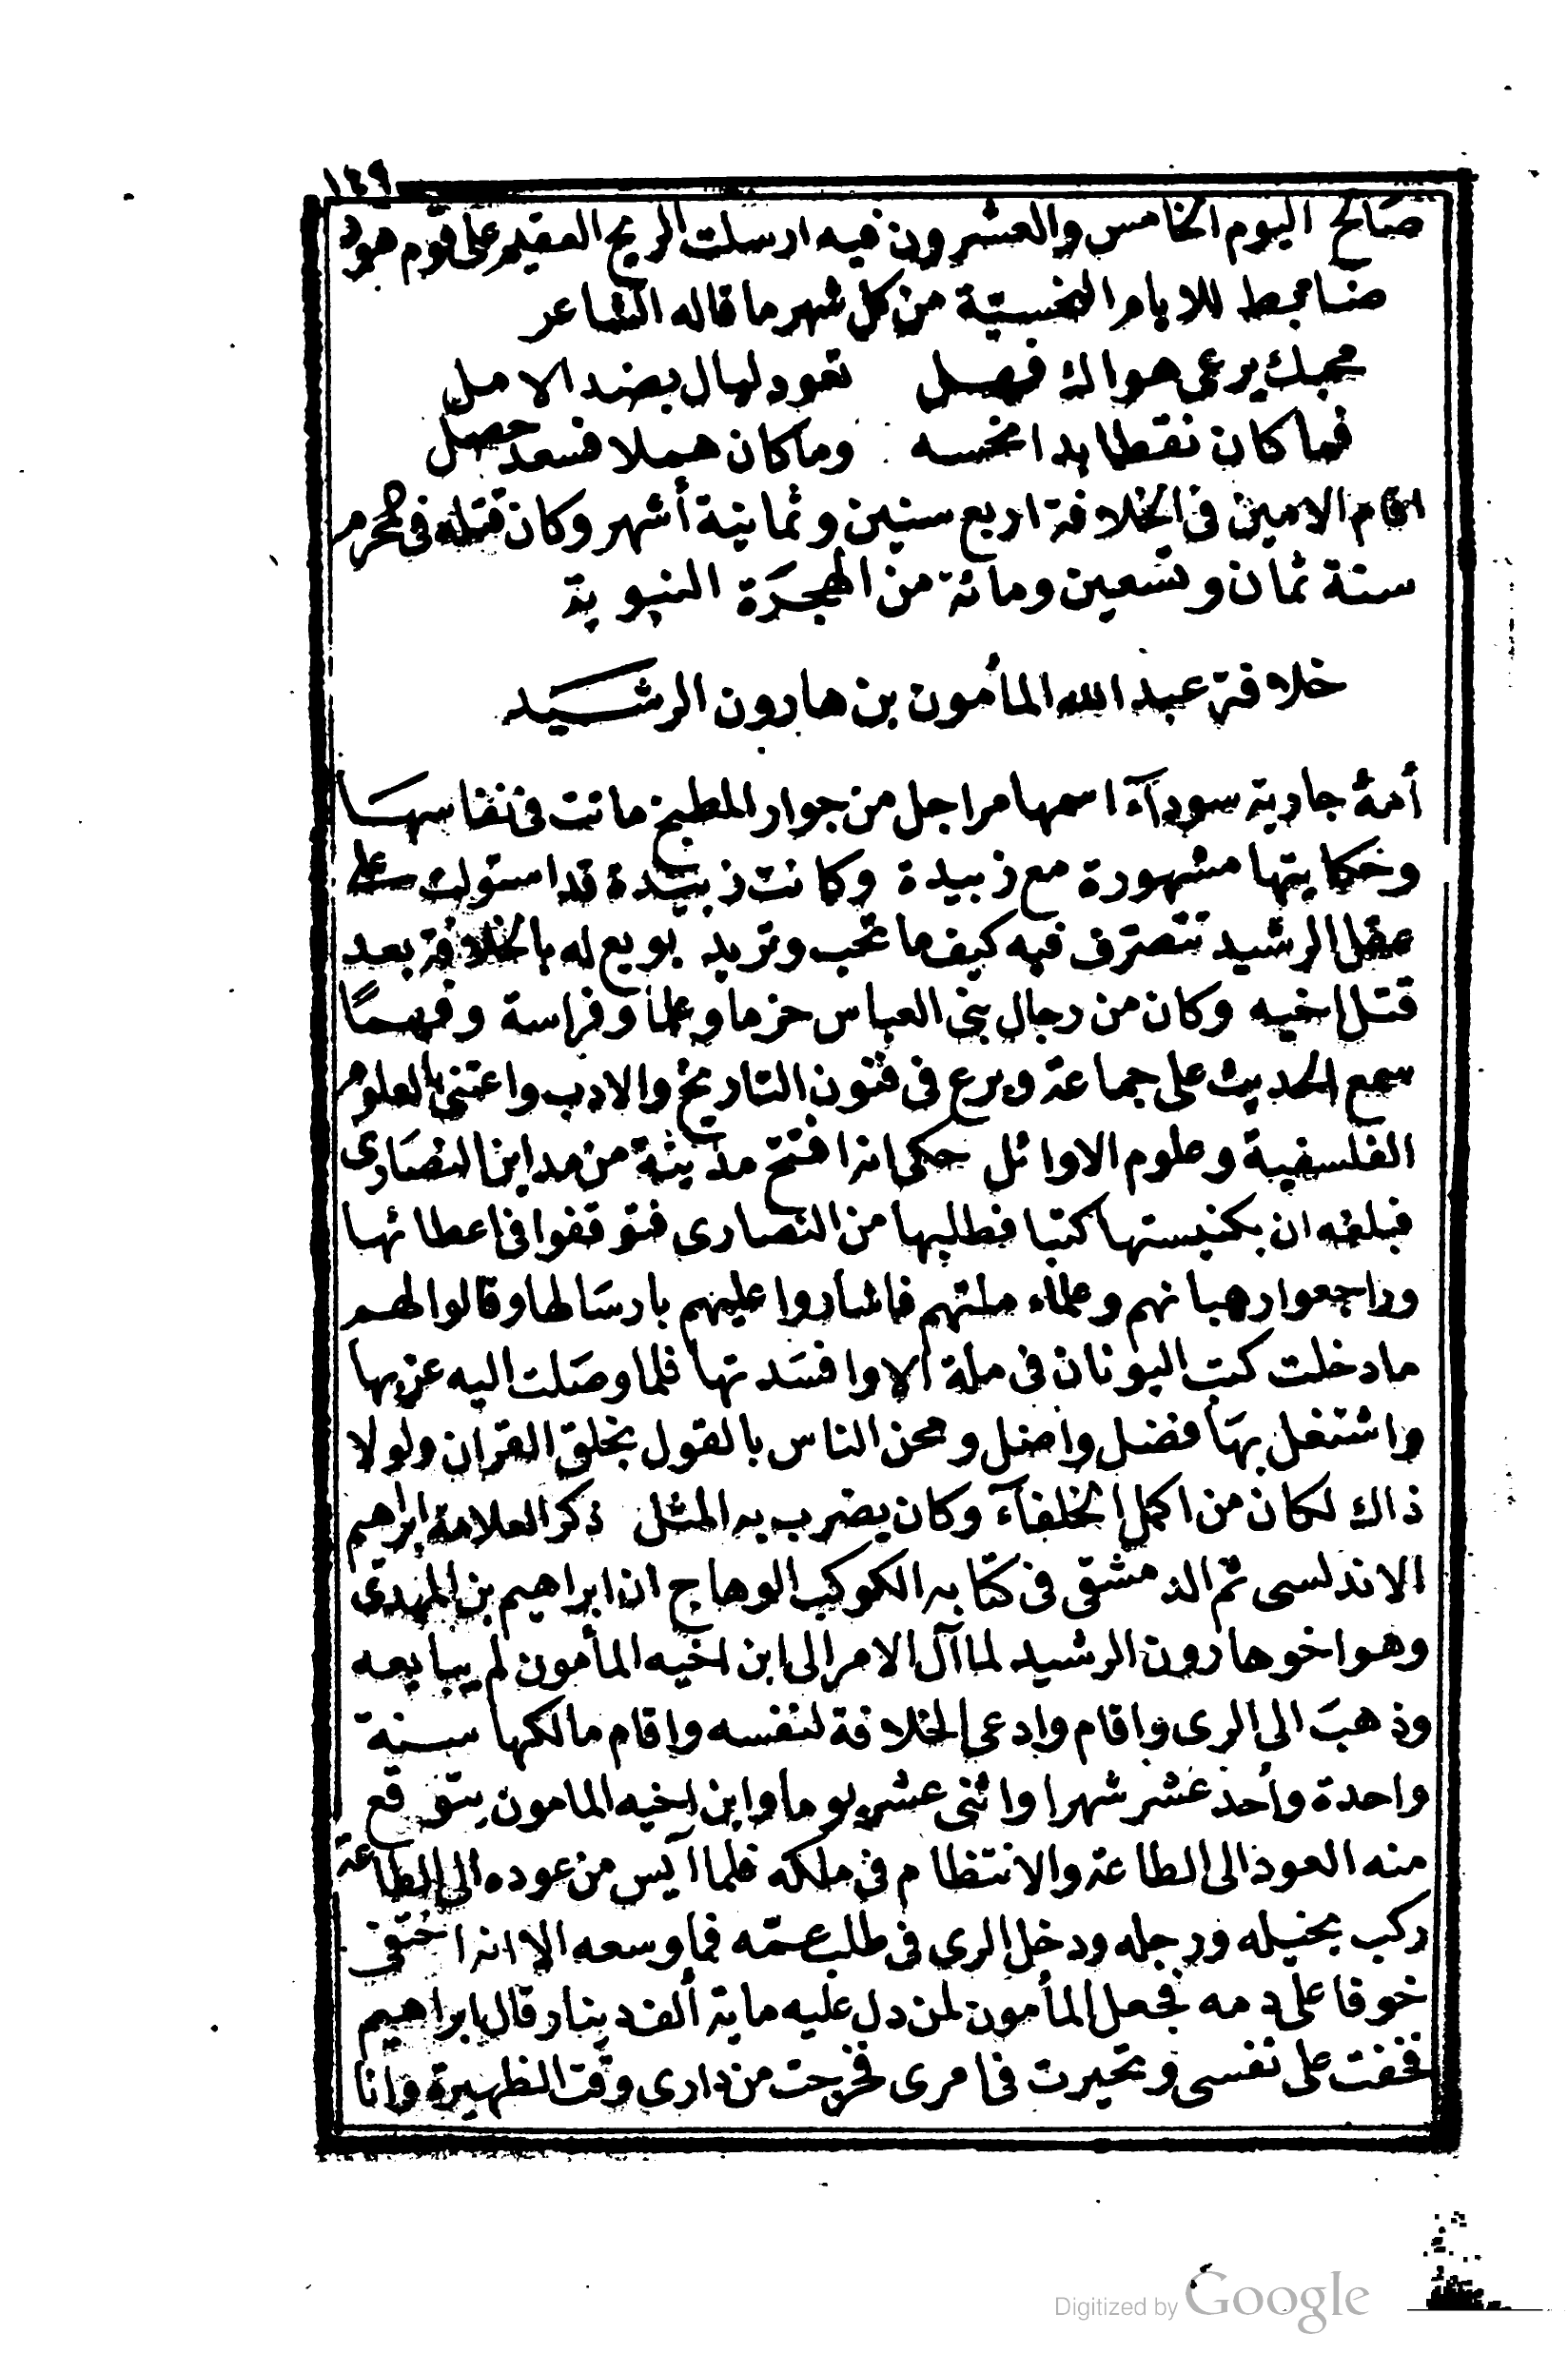 ١٤٩
صالح اليوم الخامس والعشرون فيه ارسلت الريح العقيم على قوم هود
ضابط للايام النحسية من كل شهر ما قاله الشاعر
محبك يرعى هواك فهل تعود ليال بضد الامل
فما كان نقطا بدا نحسه وما كان هملا فسعد حصل
اقام الامين فى الخلافة اربع سنين وثمانية أشهر وكان قتله فى محرم
سنة ثمان وتسعين ومائة من الهجرة النبوية
خلافة عبد الله المأمون بن هارون الرشيد
أمه جارية سودآء اسمها مراجل من جوار المطبخ ماتت فى نفاسها
وحكايتها مشهورة مع زبيدة وكانت زبيدة قد استولت على
عقل الرشيد تتصرف فيه كيف ما تحب وتريد بويع له بالخلافة بعد
قتل اخيه وكان من رجال بنى العباس حزما وعلما وفراسة وفهمًا
سمع الحديث على جماعة وبرع فى فنون التاريخ والادب واعتنى بالعلوم
الفلسفية وعلوم الاوائل حكى انه افتتح مدينة من مداين النصارى
فبلغه ان بكنيستها كتبا فطلبها من النصارى فتوقفوا فى اعطائها
وراجعوا رهبانهم وعلماء ملتهم فاشاروا عليهم بارسالها وقالوا لهم
ما دخلت كتب اليونان فى ملة الا وافسدتها فلما وصلت اليه عربها
واشتغل بها فضل واضل ومحن الناس بالقول بخلق القران ولولا
ذاك لكان من اكمل الخلفآء وكان يضرب به المثل ذكر العلامة ابراهيم
الاندلسى ثم الدمشقى فى كتابه الكوكب الوهاج ان ابراهيم بن المهدى
وهو اخو هارون الرشيد لما آل الامر الى ابن اخيه المأمون لم يبايعه
وذهب الى الرى واقام وادعى الخلافة لنفسه واقام مالكها سنة
واحدة وأحد عشر شهرا واثنى عشر يوما وابن اخيه المامون يتوقع
منه العود الى الطاعة والانتظام فى ملكه فلما آيس من عوده الى الطاعة
ركب بخيله ورجله ودخل الرى فى طلب عمّه فما وسعه الا انه اختفى
خوفا على دمه فجعل المأمون لمن دل عليه ماية ألف دينار قال ابراهيم
فخفت على نفسى وتحيرت فى امرى فخرجت من دارى وقت الظهيرة وانا
Digitized by Google